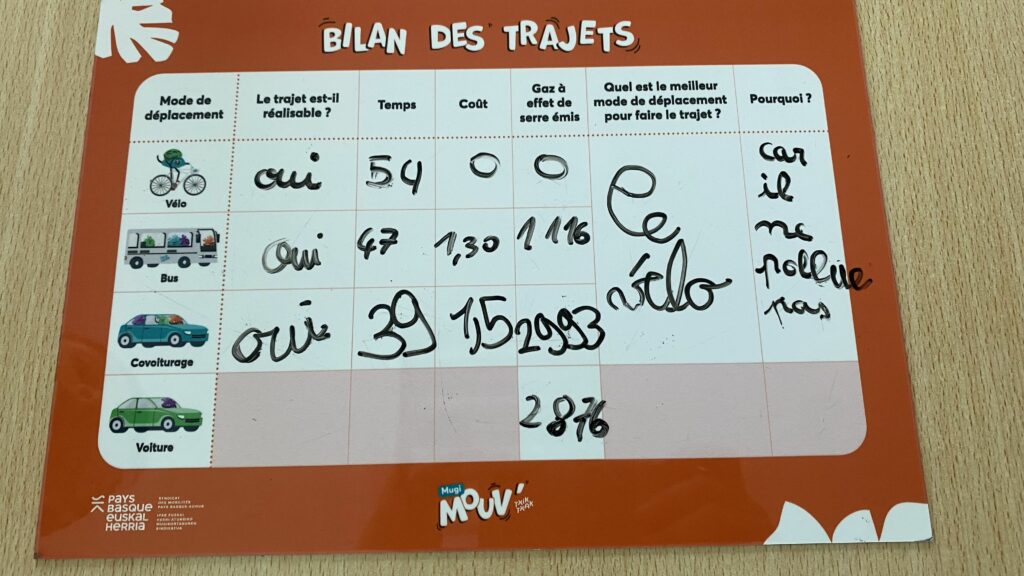 BILAN DES TRAJETS
Mode de déplacement
Le trajet est-il réalisable ?
Temps
Coût
Gaz à effet de serre émis
Quel est le meilleur mode de déplacement pour faire le trajet ?
Pourquoi ?
Vélo
oui
54
0
0
Le
vélo
car
il
ne
pollue
pas
Bus
oui
47
1,30
1116
Covoiturage
oui
39
1,5
2993
Voiture
2876
PAYS
BASQUE
EUSKAL
HERRIA
SYNDICAT
DES MOBILITÉS
PAYS BASQUE-ADOUR
Mugi
MOUV'
TXIK
TXAK